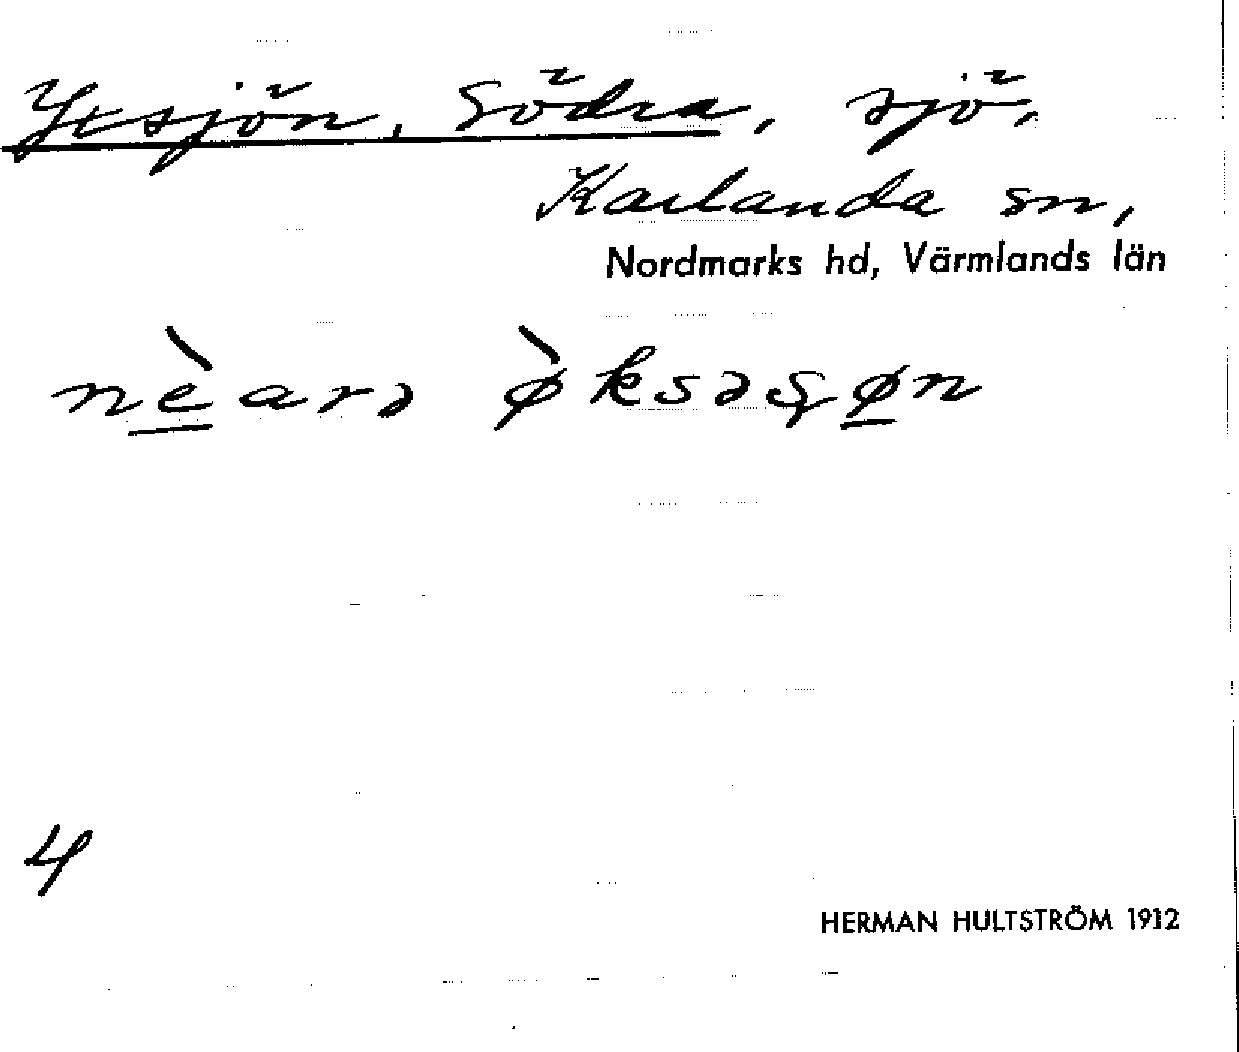 Yxsjön, Södra, sjö,
Karlanda sn,
Nordmarks hd, Värmlands län
nèarə ø̀ksəsøn
4
HERMAN HULTSTRÖM 1912